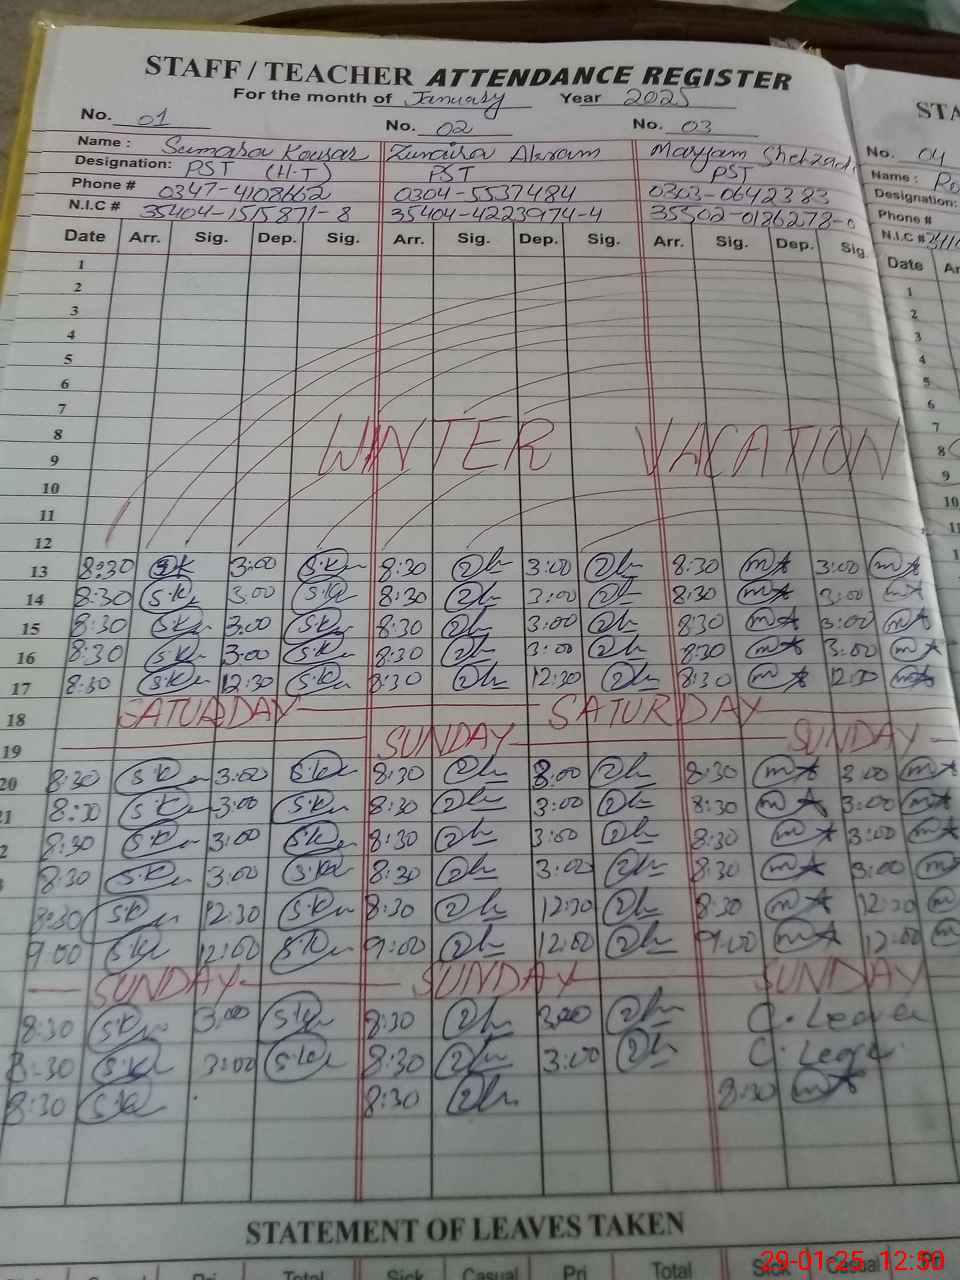 STAFF / TEACHER ATTENDANCE REGISTER
For the month of January Year 2025
No. 01 No. 02 No. 03
Name : Sumaira Kousar Zunaira Akram Maryam Shehzadi
Designation: PST (H-T) PST PST
Phone # 0347-4108662 0304-5537484 0303-0642383
N.I.C # 35404-1515871-8 35404-4223974-4 35302-0186278-0
Date Arr. Sig. Dep. Sig. Arr. Sig. Dep. Sig. Arr. Sig. Dep. Sig.
1
2
3
4
5
6
7
8 WINTER VACATION
9
10
11
12
13 8:30 SK 3:00 S.K 8:30 Zh 3:00 Zh 8:30 mA 3:00 mA
14 8:30 S.K 3:00 S.K 8:30 Zh 3:00 Zh 8:30 mA 3:00 mA
15 8:30 S.K 3:00 S.K 8:30 Zh 3:00 Zh 8:30 mA 3:00 mA
16 8:30 S.K 3:00 S.K 8:30 Zh 3:00 Zh 8:30 mA 3:00 mA
17 8:30 S.K 12:30 S.K 8:30 Zh 12:30 Zh 8:30 mA mA
18 SATURDAY SATURDAY
19 SUNDAY SUNDAY
20 8:30 S.K 3:00 S.K 8:30 Zh 3:00 Zh 8:30 mA 3:00 mA
1 8:30 S.K 3:00 S.K 8:30 Zh 3:00 Zh 8:30 mA 3:00 mA
2 8:30 S.K 3:00 S.K 8:30 Zh 3:00 Zh 8:30 mA 3:00 mA
8:30 S.K 3:00 S.K 8:30 Zh 3:00 Zh 8:30 mA 3:00 m
8:30 S.K 12:30 S.K 8:30 Zh 12:30 Zh 8:30 mA 12:30 m
9:00 S.K 12:00 S.K 9:00 Zh 12:00 Zh 9:00 mA 12:00 m
SUNDAY SUNDAY SUNDAY
8:30 S.K 3:00 S.K 8:30 Zh 3:00 Zh C. Leave
8:30 S.K 3:00 S.K 8:30 Zh 3:00 Zh C. Leave
8:30 S.K 8:30 Zh 8:30 mA
STATEMENT OF LEAVES TAKEN
Total Sick Casual Pri Total Sick Casual
STA
No. 04
Name :
Designation:
Phone #
N.I.C #
Date
1
2
3
4
5
6
7
8
9
10
11
29-01-25 12:50